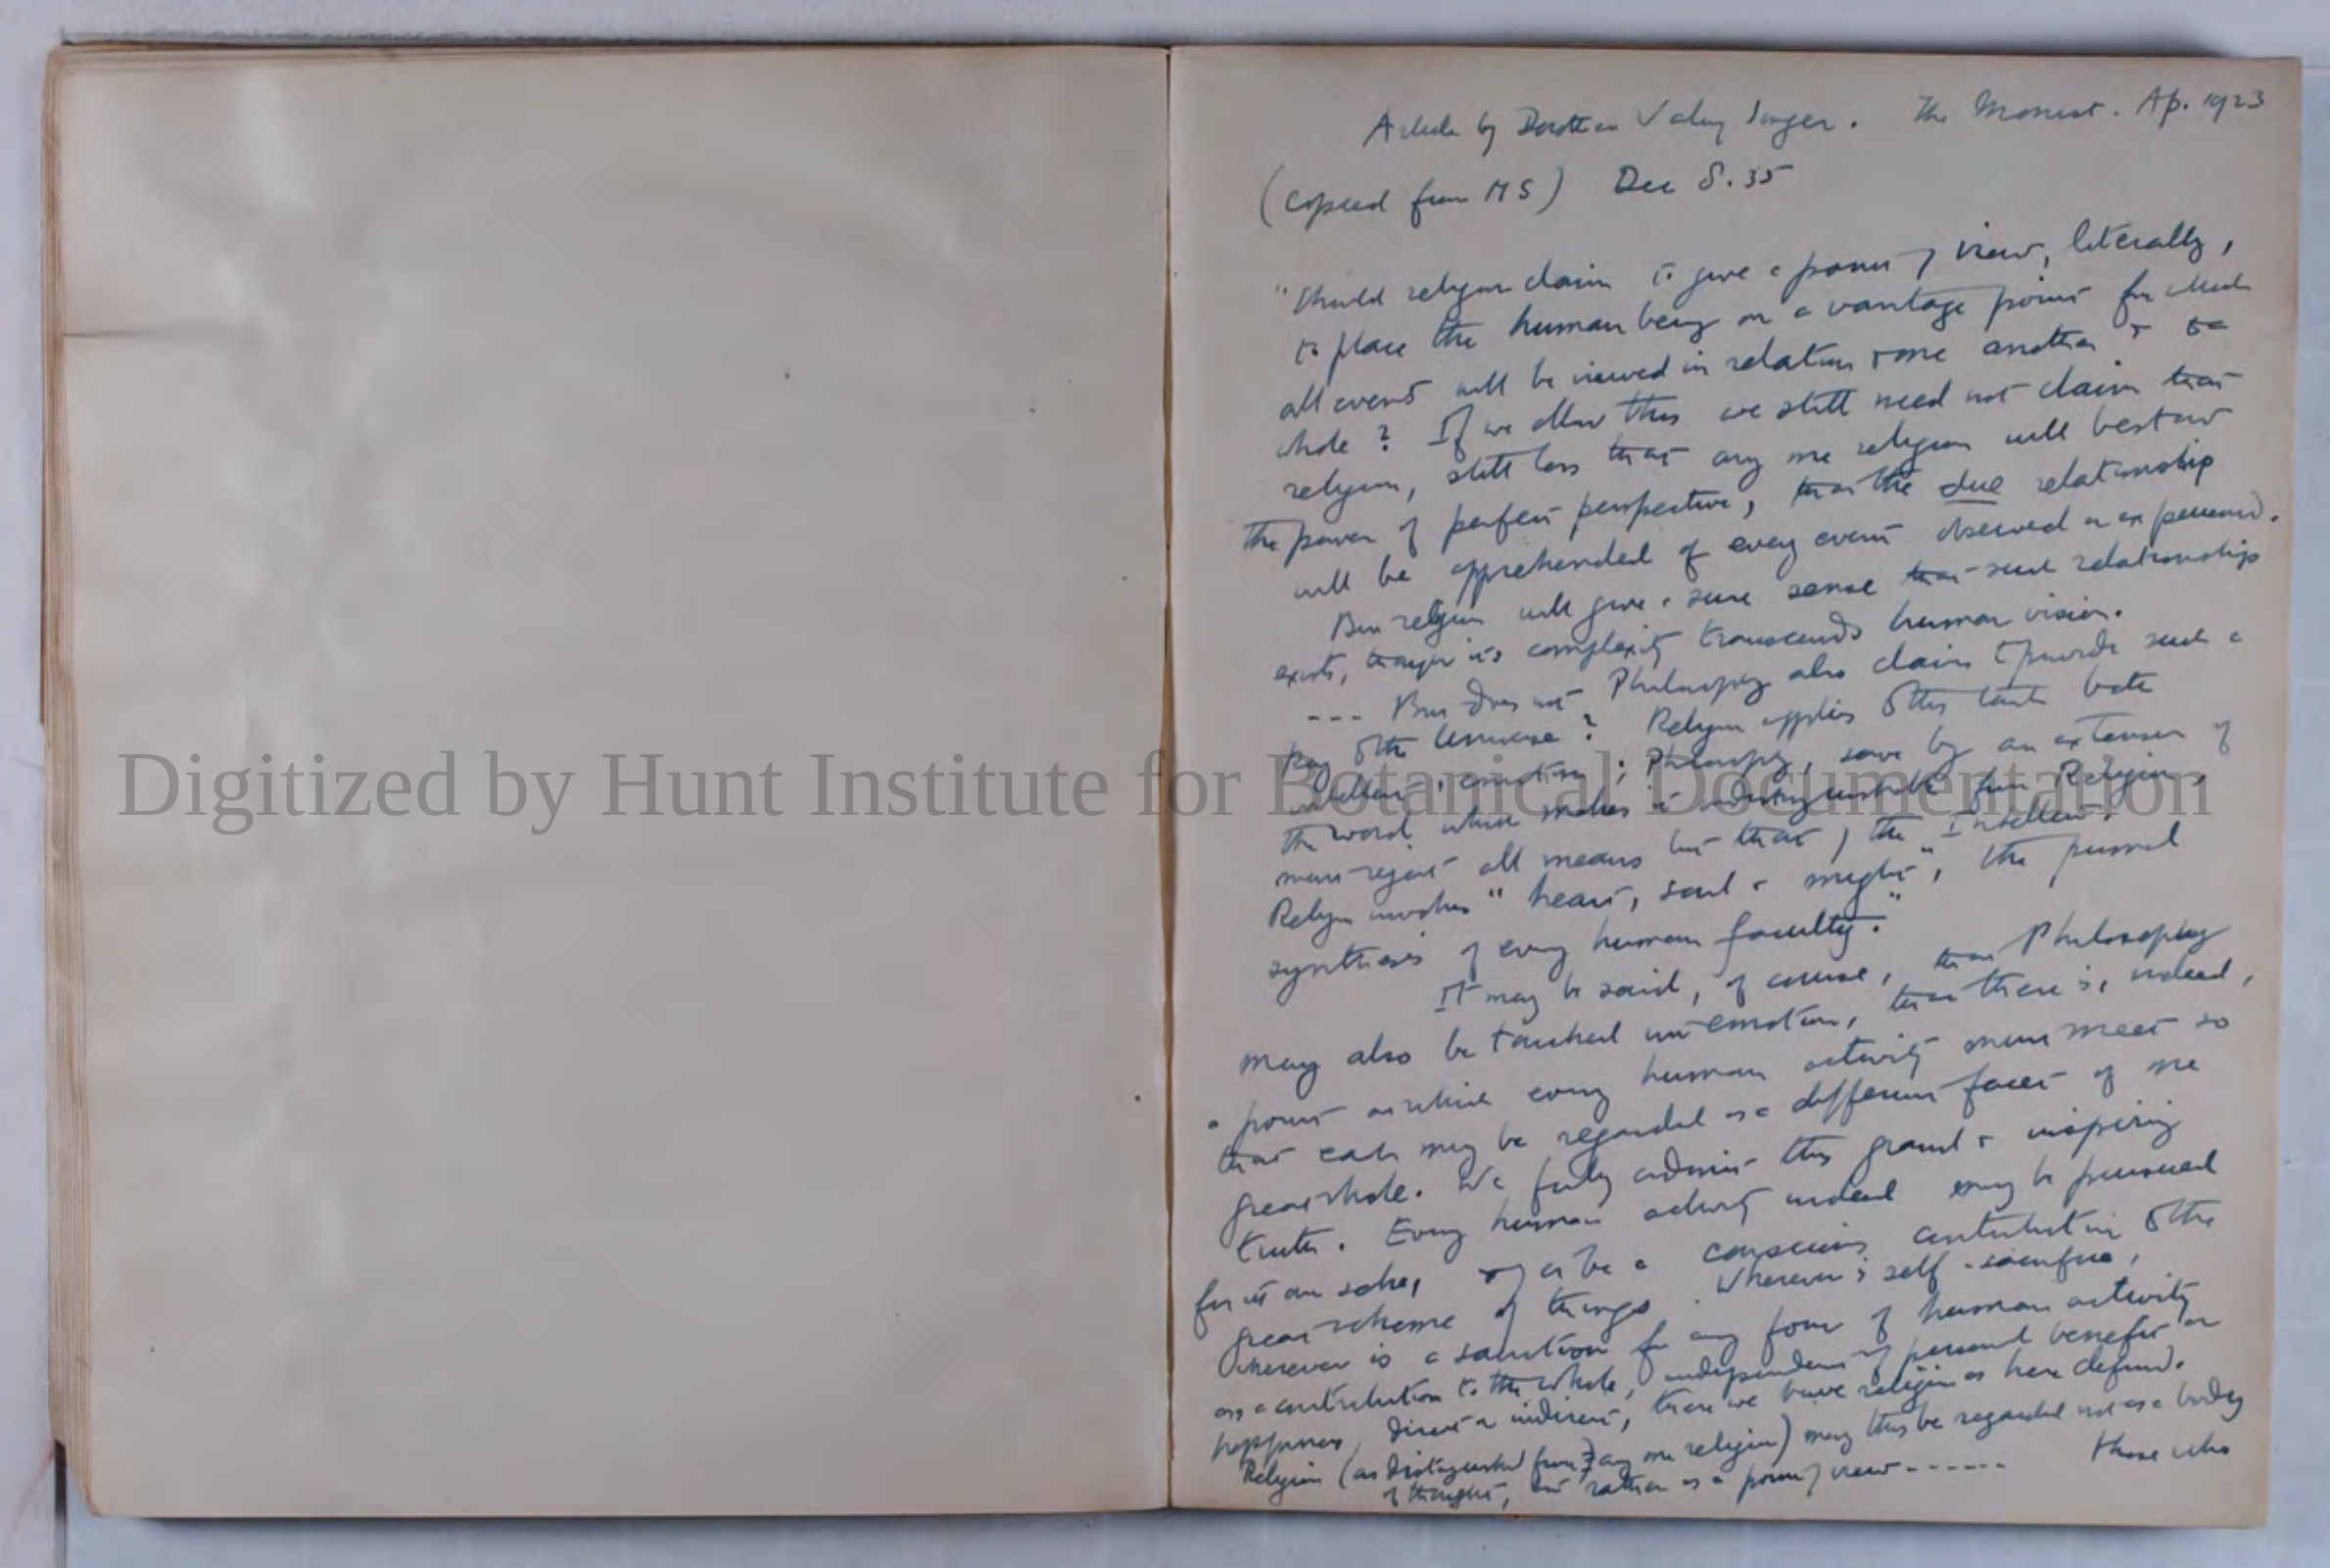 Article by Dorothea Waley Singer. The Monist. Ap. 1923
(Copied from MS) Dec 8. 35
"Should religion claim to give a point of view, literally,
to place the human being on a vantage point from which
all events will be viewed in relation to one another & to a
whole? If we allow this we still need not claim that
religion, still less that any one religion will bestow
the power of perfect perspective, that the due relationship
will be apprehended of every event observed or experienced.
But religion will give a sure sense that such relationship
exists, though its complexity transcends human vision.
--- But does not Philosophy also claim to provide such a
key to the Universe? Religion applies to this task both
intellect & emotion; Philosophy, save by an extension of
the word which makes it indistinguishable from Religion,
must reject all means but that of the Intellect.
Religion invokes "heart, soul & might", the
synthesis of every human faculty."
It may be said, of course, that Philosophy
may also be touched with emotion, that there is, indeed,
a point at which every human activity must meet so
that each may be regarded as a different facet of one
great whole. We fully admit this grand & inspiring
truth. Every human activity indeed may be pursued
for its own sake, or as being a conscious contribution to the
great scheme of things. Wherever is self-sacrifice,
wherever is a sanction for any form of human activity
as a contribution to the whole, independent of personal benefit or
happiness, direct or indirect, there we have religion as here defined.
Religion (as distinguished from any one religion) may thus be regarded not as a body
of thought, but rather as a point of view ------ Those who
Digitized by Hunt Institute for Botanical Documentation